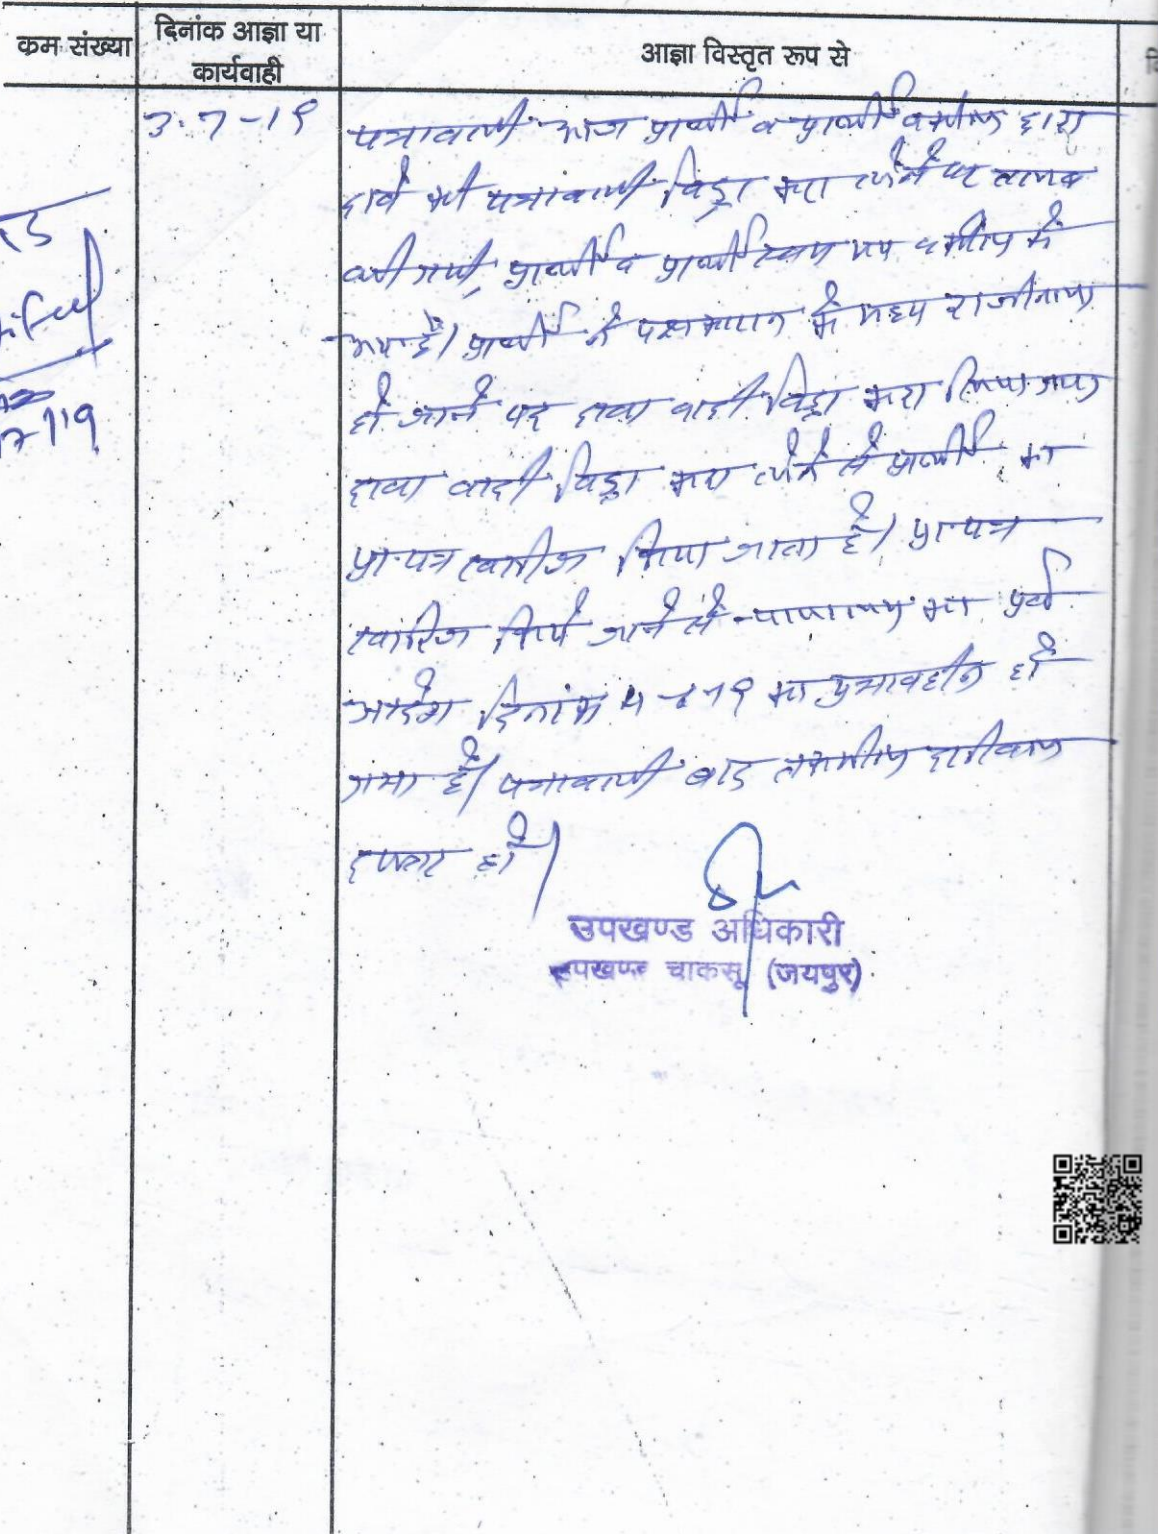 क्रम संख्या
दिनांक आज्ञा या
कार्यवाही
आज्ञा विस्तृत रूप से
3-7-19
पत्रावली आज प्रार्थी व प्रार्थी वकील द्वारा
दावे की पत्रावली विड्रा करा लेने पर तलब
की गयी, प्रार्थी व प्रार्थी स्वयं मय वकील के
प्रार्थी ने पक्षकारान के मध्य राजीनामा
हो जाने पर दावा वादी विड्रा करा लिया गया
दावा वादी विड्रा करा लेने से प्रार्थी का
प्रा.पत्र खारिज किया जाता है। प्रा.पत्र
खारिज किये जाने से न्यायालय का पूर्व
आदेश दिनांक प्रभावहीन हो
गया है। पत्रावली बाद तकमील दाखिल
दफ्तर हो।
उपखण्ड अधिकारी
उपखण्ड चाकसू (जयपुर)